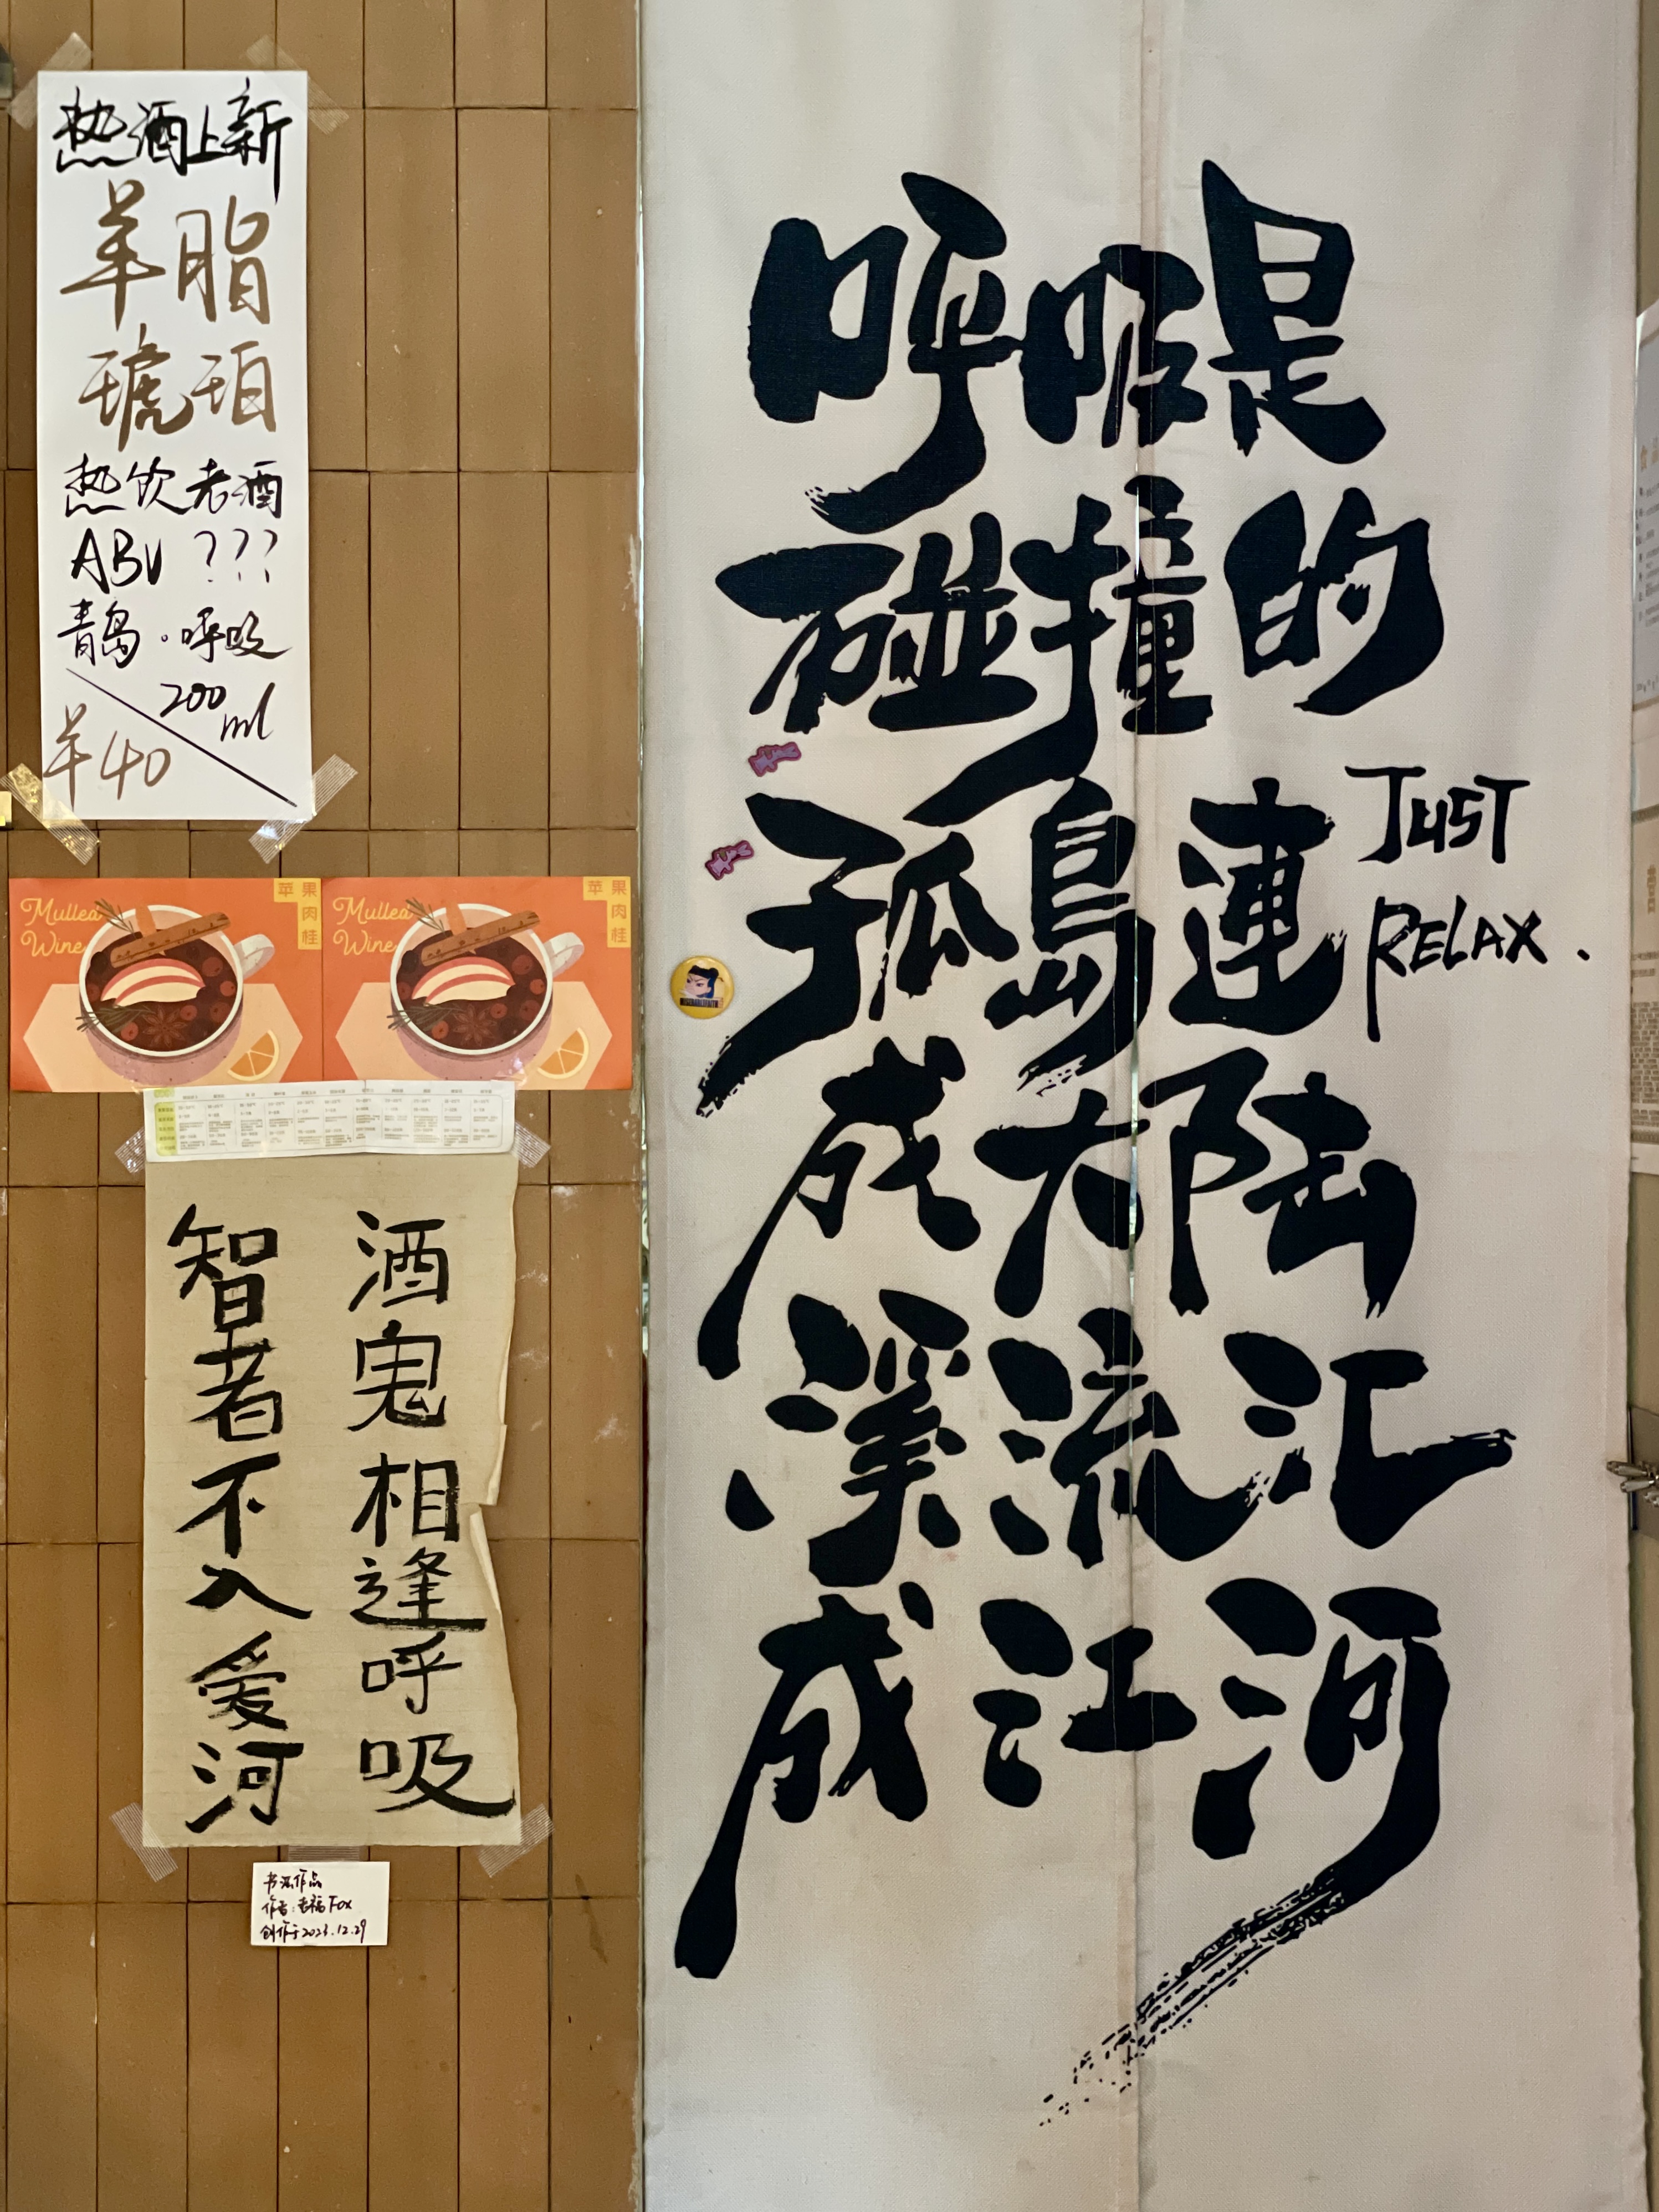 热酒上新
羊脂
琥珀
热饮老酒
ABV ???
青岛·呼吸
200ml
羊40
Mulled Wine
苹果肉桂
Mulled Wine
苹果肉桂
酒鬼相逢呼吸
智者不入爱河
书法作品
作者:幸福Fox
创作于2023.12.29
呼吸是
碰撞的
孤島連
成大陆
溪流汇
成江河
JUST
RELAX.